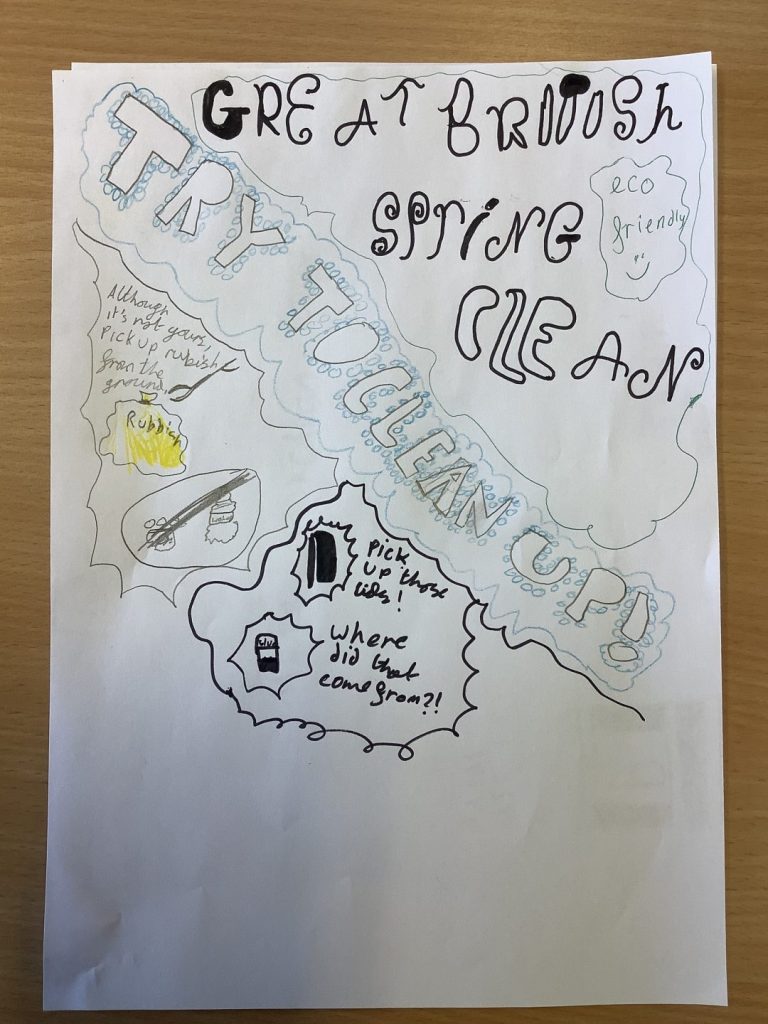 GREAT BRITISH
SPRING
CLEAN
eco
friendly
TRY TO CLEAN UP!
Although
it's not yours,
Pick up rubish
from the
ground.
Rubbish
Pick
up those
lids!
Where
did that
come from?!